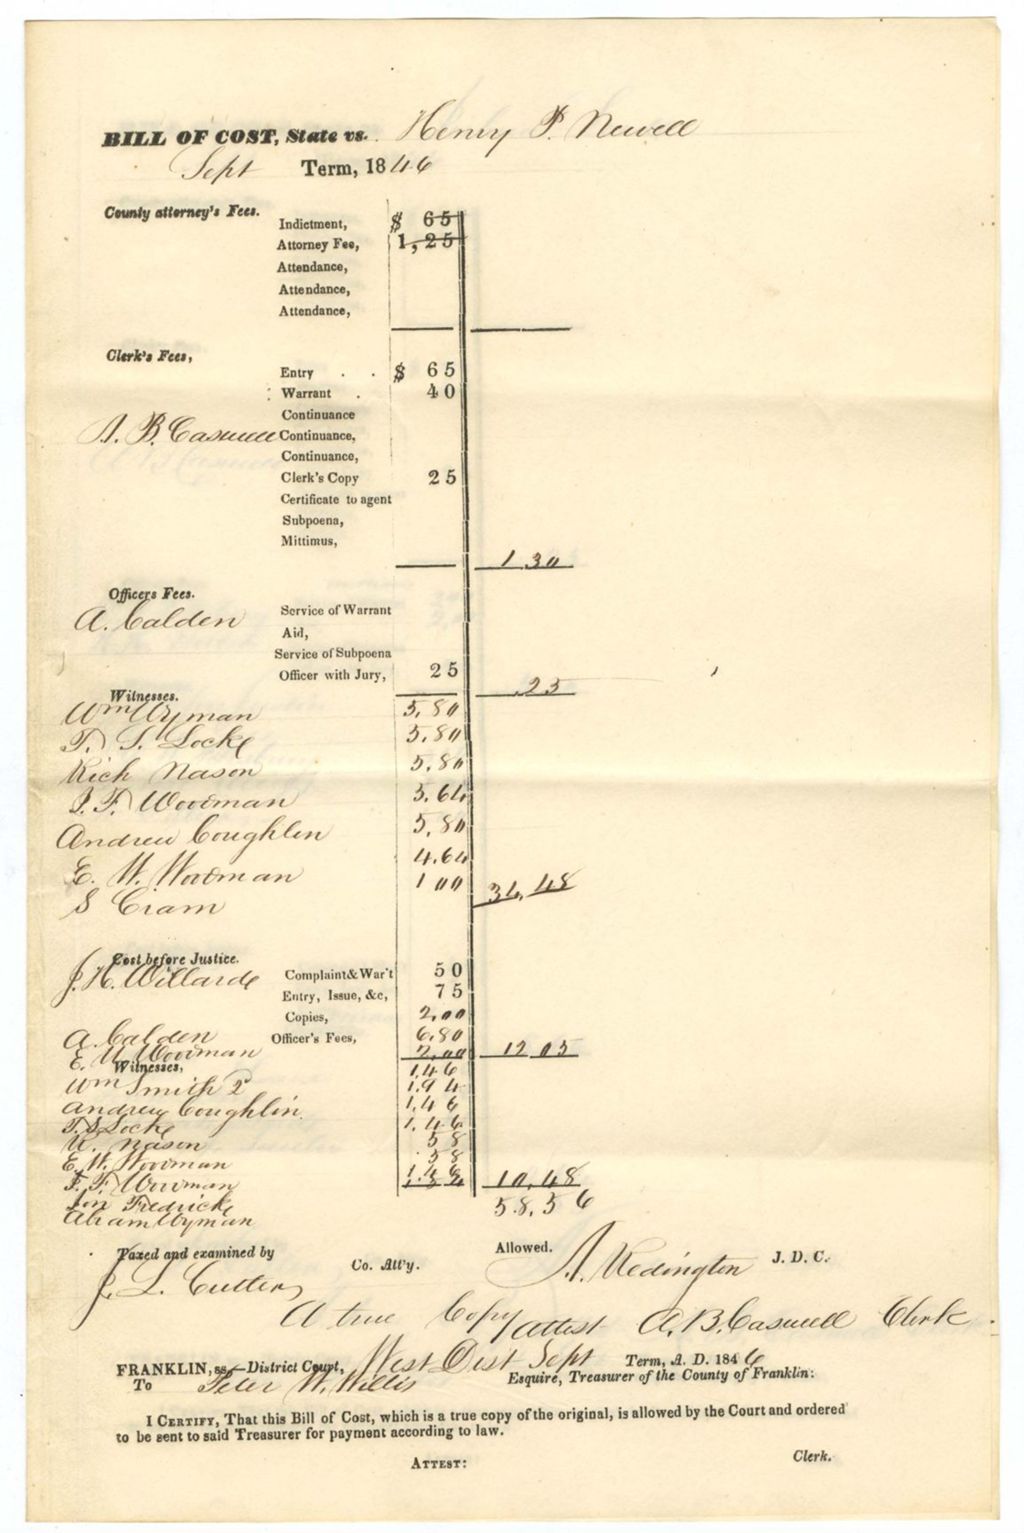 BILL OF COST, State vs. Henry P. Newell
Sept Term, 1846
County attorney's Fees.
Indictment, $ 65
Attorney Fee, 1,25
Attendance,
Attendance,
Attendance,
Clerk's Fees,
Entry . . $ 65
Warrant . 40
Continuance
A. B. Caswell Continuance,
Continuance,
Clerk's Copy 25
Certificate to agent
Subpoena,
Mittimus,
1.30
Officers Fees.
A. Calden Service of Warrant
Aid,
Service of Subpoena
Officer with Jury, 25
.25
Witnesses.
Wm Wyman 5,80
T. S. Locke 5.80
Rich Nason 5.80
J. F. Woodman 5.64
Andrew Coughlin 5,80
E. W. Woodman 4.64
S Cram 1 00 34,48
Cost before Justice.
J. H. Willard Complaint & War't 50
Entry, Issue, &c, 75
Copies, 2,00
A. Calden Officer's Fees, 6,80
E. W. Woodman 2,00 12 05
Witnesses, 1,46
Wm Smith 2d 1.94
Andrew Coughlin 1,46
T. S. Locke 1,46
R. Nason 58
E. W. Woodman .58
F. F. Woodman 1.46 10,48
Jon Fredrick 58,56
Abram Wyman
Taxed and examined by Allowed.
J. L. Cutler Co. Att'y. A. Redington J. D. C.
A true Copy Attest A. B. Caswell Clerk
FRANKLIN, ss.—District Court, West Dist Sept Term, A. D. 1846
To Peter W. Willis Esquire, Treasurer of the County of Franklin:
I CERTIFY, That this Bill of Cost, which is a true copy of the original, is allowed by the Court and ordered
to be sent to said Treasurer for payment according to law.
ATTEST: Clerk.